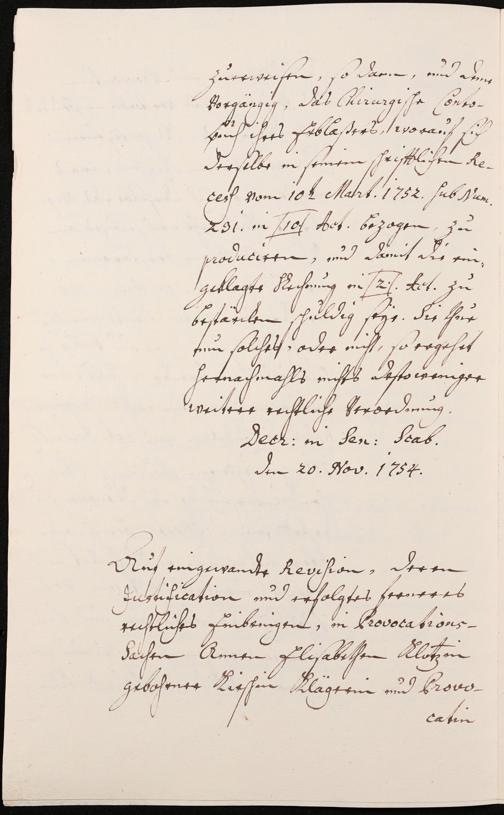 zuerweisen, so dann, und deme
Vorgängig, das Chirurgische Conto-
buch ihres Erblaßers, worauf sich
derselbe in seinem schrifftlichen Re-
ceß vom 10t Mart. 1752. sub Num.
231. in [10] Act. bezogen, zu
produciren, und damit die ein-
geklagte Rechnung in [2]. Act. zu
bestärcken schuldig seye. Sie thue
nun solches, oder nicht, so ergehet
hernachmahls nichts destoweniger
weitere rechtliche Verordnung.
Decr: in Sen: Scab.
den 20. Nov. 1754.
Auf eingewandte Revision, deren
Justification und erfolgtes ferneres
rechtliches Einbringen, in Provocations-
Sachen Annen Elisabethen Klotzin
gebohrner Kirschin Klägerin und Provo-
catin